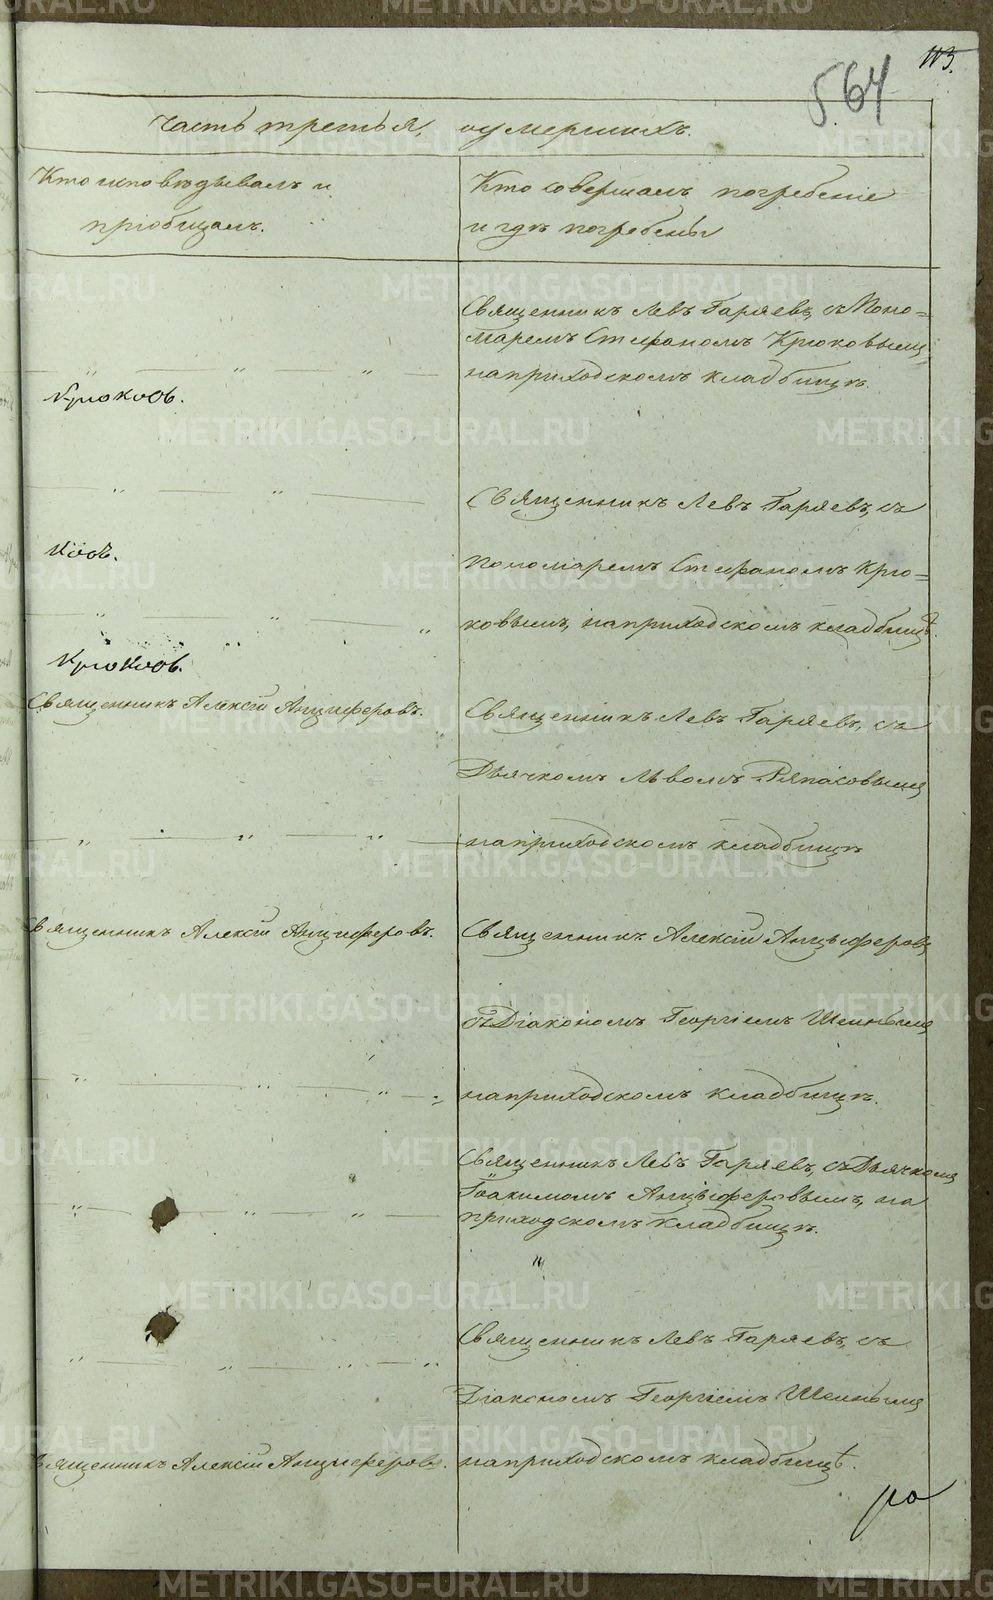 113.
564
Часть третья, о умершихъ.
Кто исповѣдывалъ и
пріобщалъ.
Кто совершалъ погребеніе
и гдѣ погребены
Священникъ Левъ Гаряевъ, съ Поно=
маремъ Стефаномъ Крюковымъ,
на приходскомъ кладбищѣ.
Крюковъ.
Священникъ Левъ Гаряевъ, съ
Пономаремъ Стефаномъ Крю=
ковымъ, на приходскомъ кладбищѣ.
Крюковъ.
Священникъ Алексій Анциферовъ.
Священникъ Левъ Гаряевъ, съ
Дьячкомъ Львомъ Ряпасовымъ
на приходскомъ кладбищѣ
Священникъ Алексій Анциферовъ.
Священникъ Алексій Анцыферовъ
съ Діакономъ Георгіемъ Шеинымъ
на приходскомъ кладбищѣ.
Священникъ Левъ Гаряевъ, съ Дьячкомъ
Іоакимомъ Анцыферовымъ, на
приходскомъ кладбищѣ.
Священникъ Левъ Гаряевъ, съ
Діакономъ Георгіемъ Шеинымъ
Священникъ Алексій Анциферовъ.
на приходскомъ кладбищѣ.
METRIKI.GASO-URAL.RU